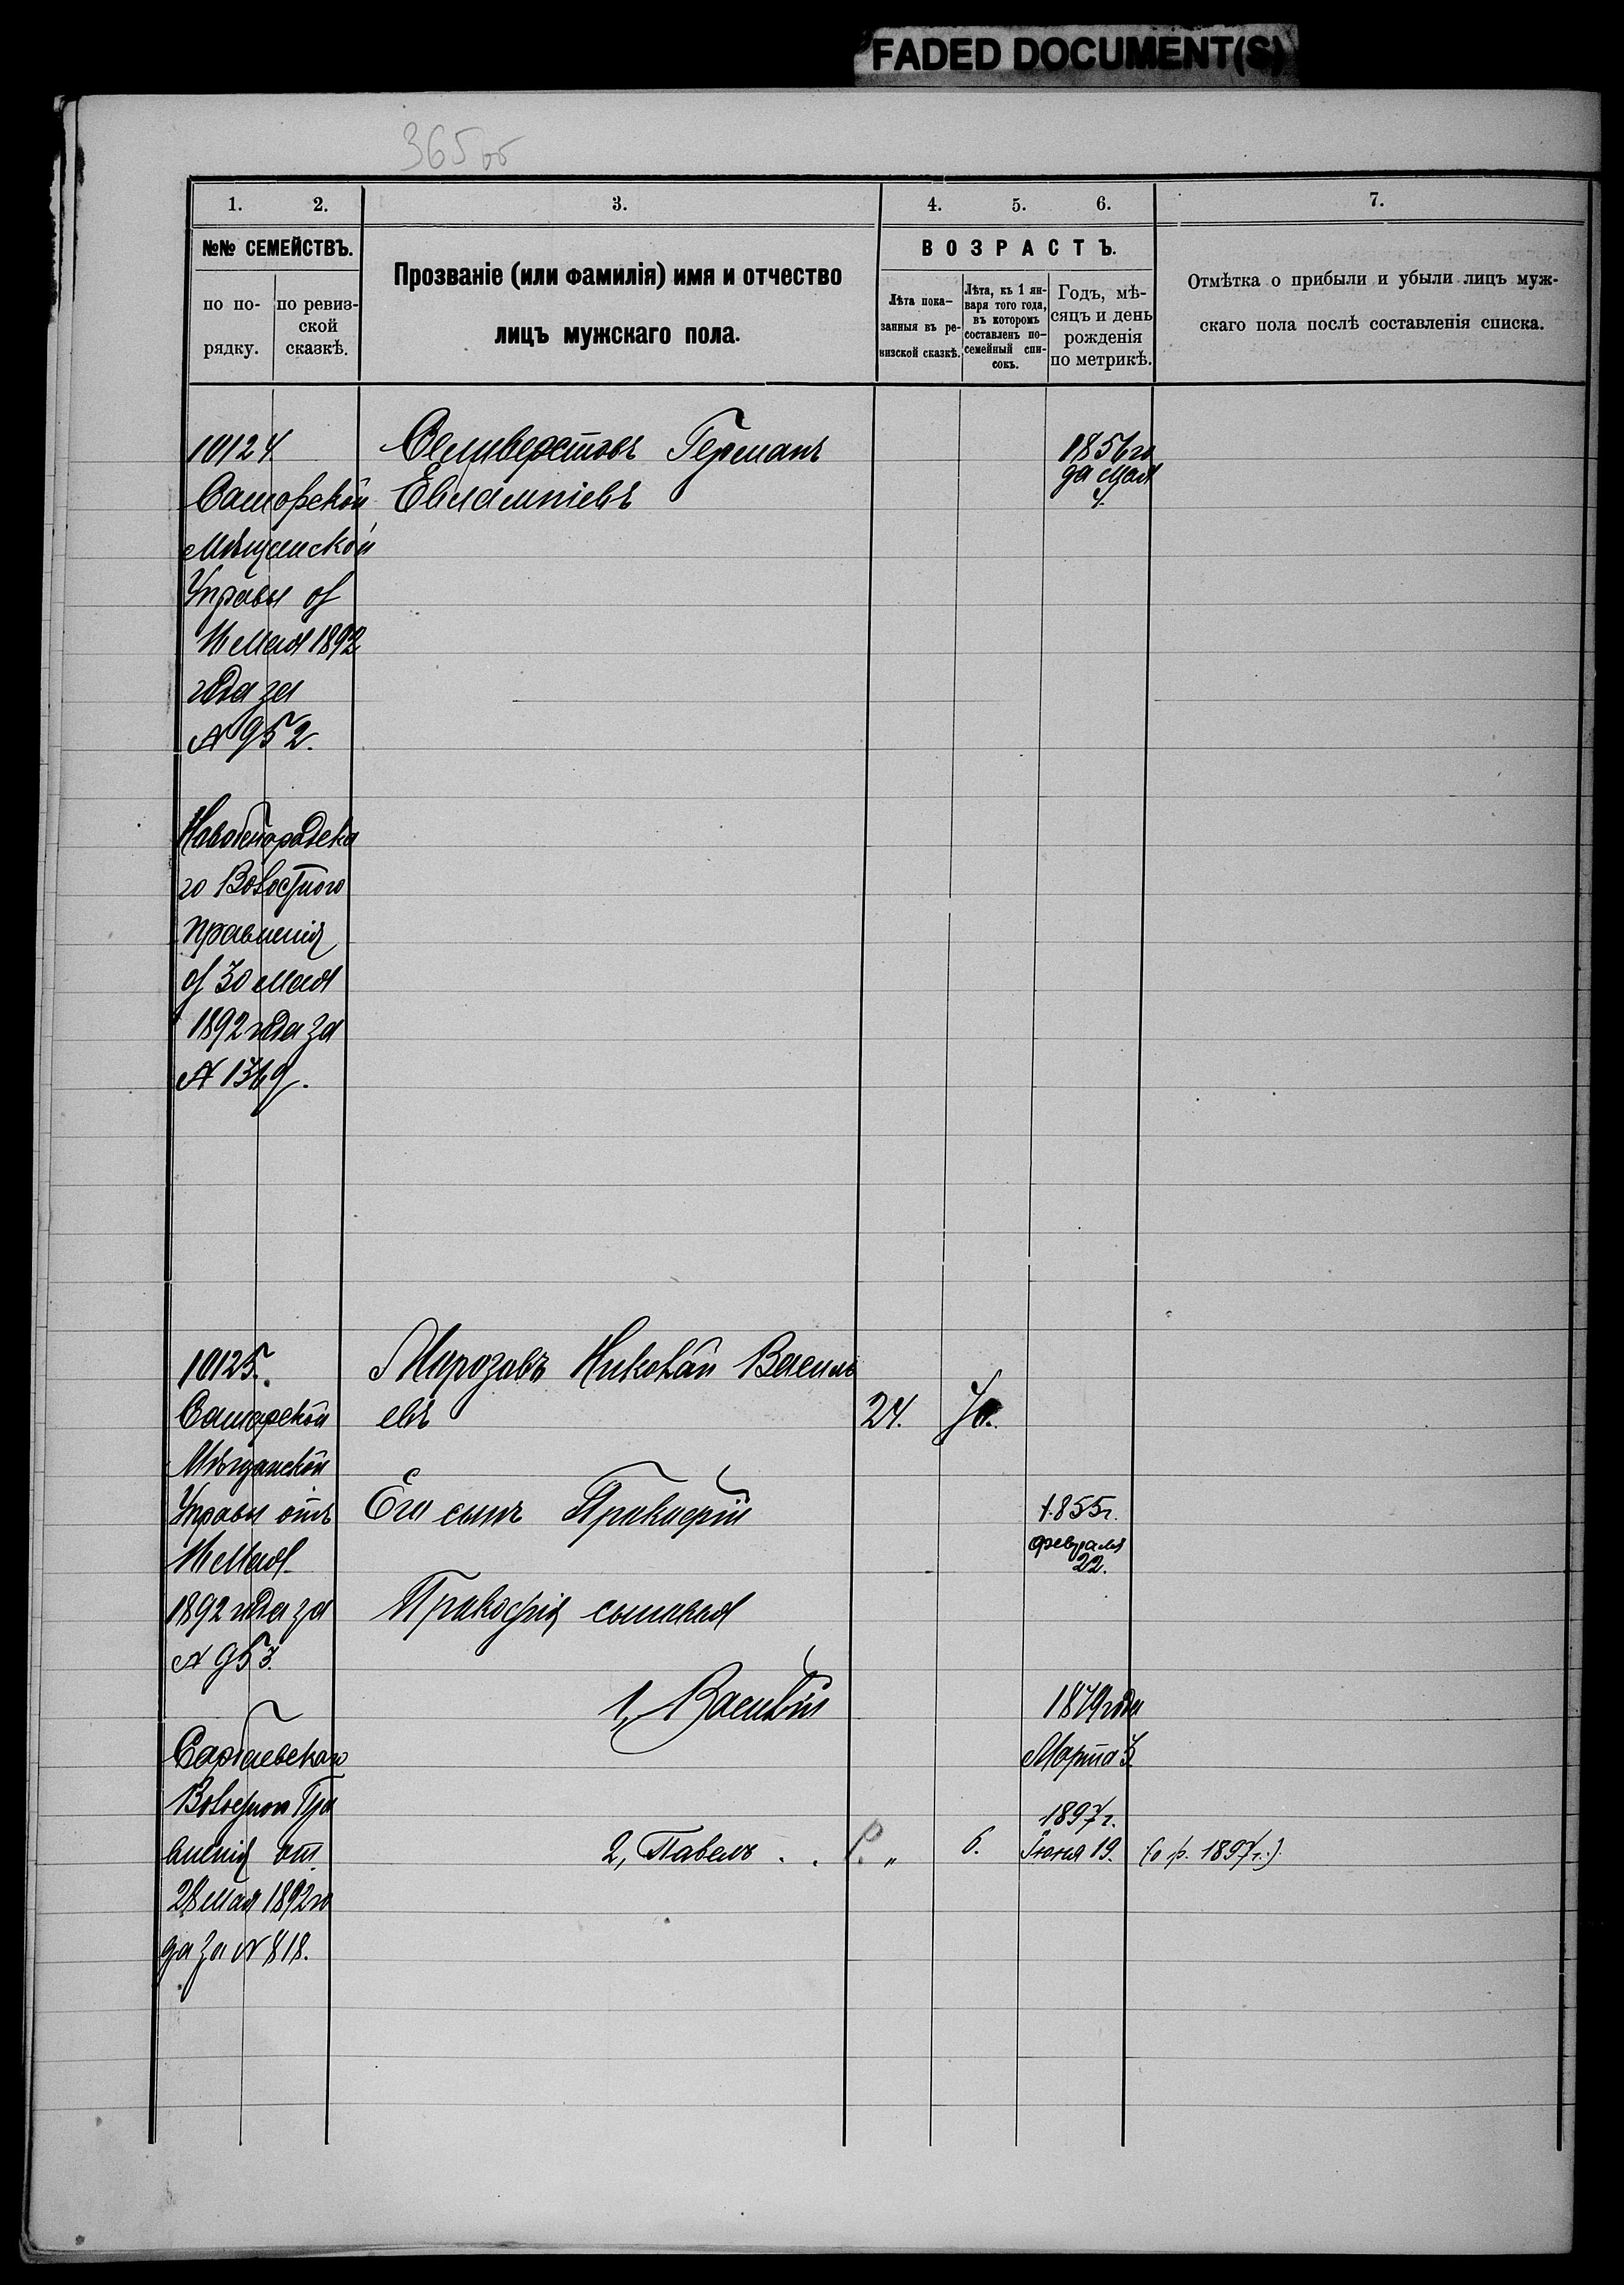 FADED DOCUMENT(S)
365 об
1. 2. 3. 4. 5. 6. 7.
№№ СЕМЕЙСТВЪ.
по по-
рядку.
по ревиз-
ской
сказкѣ.
Прозваніе (или фамилія) имя и отчество
лицъ мужскаго пола.
ВОЗРАСТЪ.
Лѣта пока-
занныя въ ре-
визской сказкѣ.
Лѣта, къ 1 ян-
варя того года,
въ которомъ
составленъ по-
семейный спи-
сокъ.
Годъ, мѣ-
сяцъ и день
рожденія
по метрикѣ.
Отмѣтка о прибыли и убыли лицъ муж-
скаго пола послѣ составленія списка.
10124
Самарской
Мѣщанской
Управы от
11 Мая 1892
года за
№ 952.
го Волостного
правленія
от 30 мая
1892 года за
№ 1369.
Селиверстовъ Германъ
Евлампіевъ
1856 го
да мая
4.
10125.
Самарской
Мѣщанской
Управы отъ
11 Мая
1892 года за
№ 953.
Сарбаевскаго
Волостного Пра
вленія от
28 мая 1892 го
да за № 818.
Морозовъ Николай Василь
евъ
24.
Его сынъ Прокофій
1855 г.
февраля
22.
Прокофія сыновья
1, Василій
1879 года
Марта 3
2, Павелъ . . Р. „ 6.
1897 г.
Іюня 19.
(о р. 1897 г.)